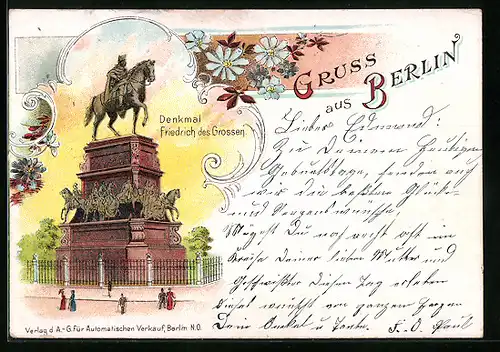 GRUSS
aus BERLIN
Denkmal
Friedrich des Grossen
Lieber Edmund!
Zu Deinem heutigen
Geburtstage, senden auch
wir die besten Glück-
und Segenswünsche,
Mögest Du noch recht oft im
Kreise Deiner lieben Mutter und
Geschwister diesen Tag erleben
dieses wünscht von ganzem Herzen
Dein Onkel u Tante.
Verlag d. A.-G. für Automatischen Verkauf, Berlin N.O.